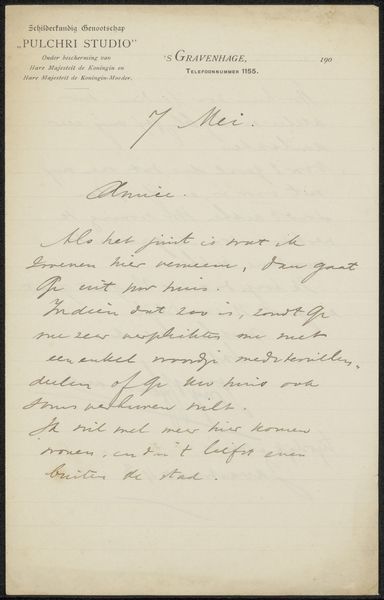 Schilderkundig Genootschap
„PULCHRI STUDIO"
Onder bescherming van
Hare Majesteit de Koningin en
Hare Majesteit de Koningin-Moeder.
'S GRAVENHAGE, 190
TELEFOONNUMMER 1155.
7 Mei.
Amice.
Als het juist is wat ik
hier verneem, dan gaat
Gy uit uw huis.
Indien dat zoo is, zoudt Gy
me zeer verplichten me met
een enkel woordje mede te willen
deelen of Gy uw huis ook
soms verhuren wilt.
Ik wil wel meer hier komen
wonen, en dan 't liefst even
buiten de stad.